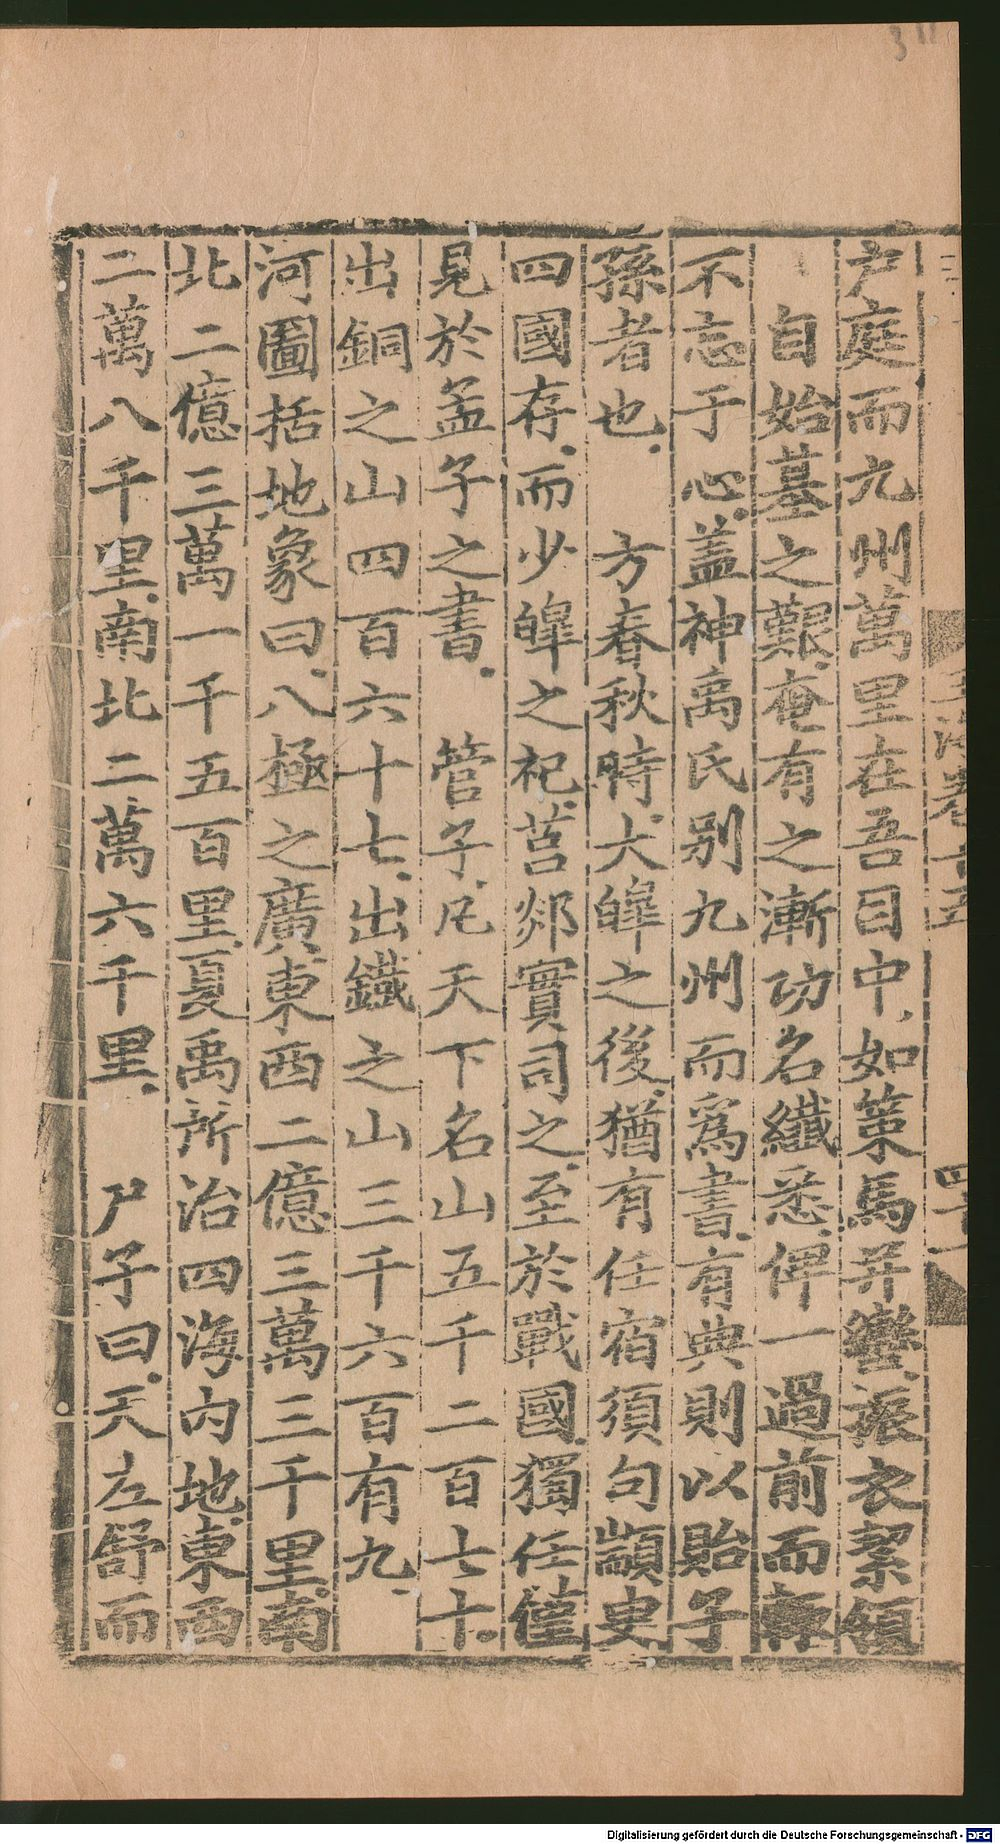 戸庭而九州萬里在吾目中如策馬幷蠻振衣絜領
自始基之艱奄有之漸功名纖悉俾一過前而輒
不忘于心盖神禹氏别九州而爲書有典則以貽子
孫者也 方春秋時大皥之後猶有任宿須句顓臾
四國存而少皥之祀莒郯實司之至於戰國獨任僅
見於孟子之書 管子凡天下名山五千二百七十
出銅之山四百六十七出鐵之山三千六百有九
河圖括地象曰八極之廣東西二億三萬三千里南
北二億三萬一千五百里夏禹所治四海内地東西
二萬八千里南北二萬六千里 尸子曰天左舒而
玉海卷十五
四十一
Digitalisierung gefördert durch die Deutsche Forschungsgemeinschaft - DFG